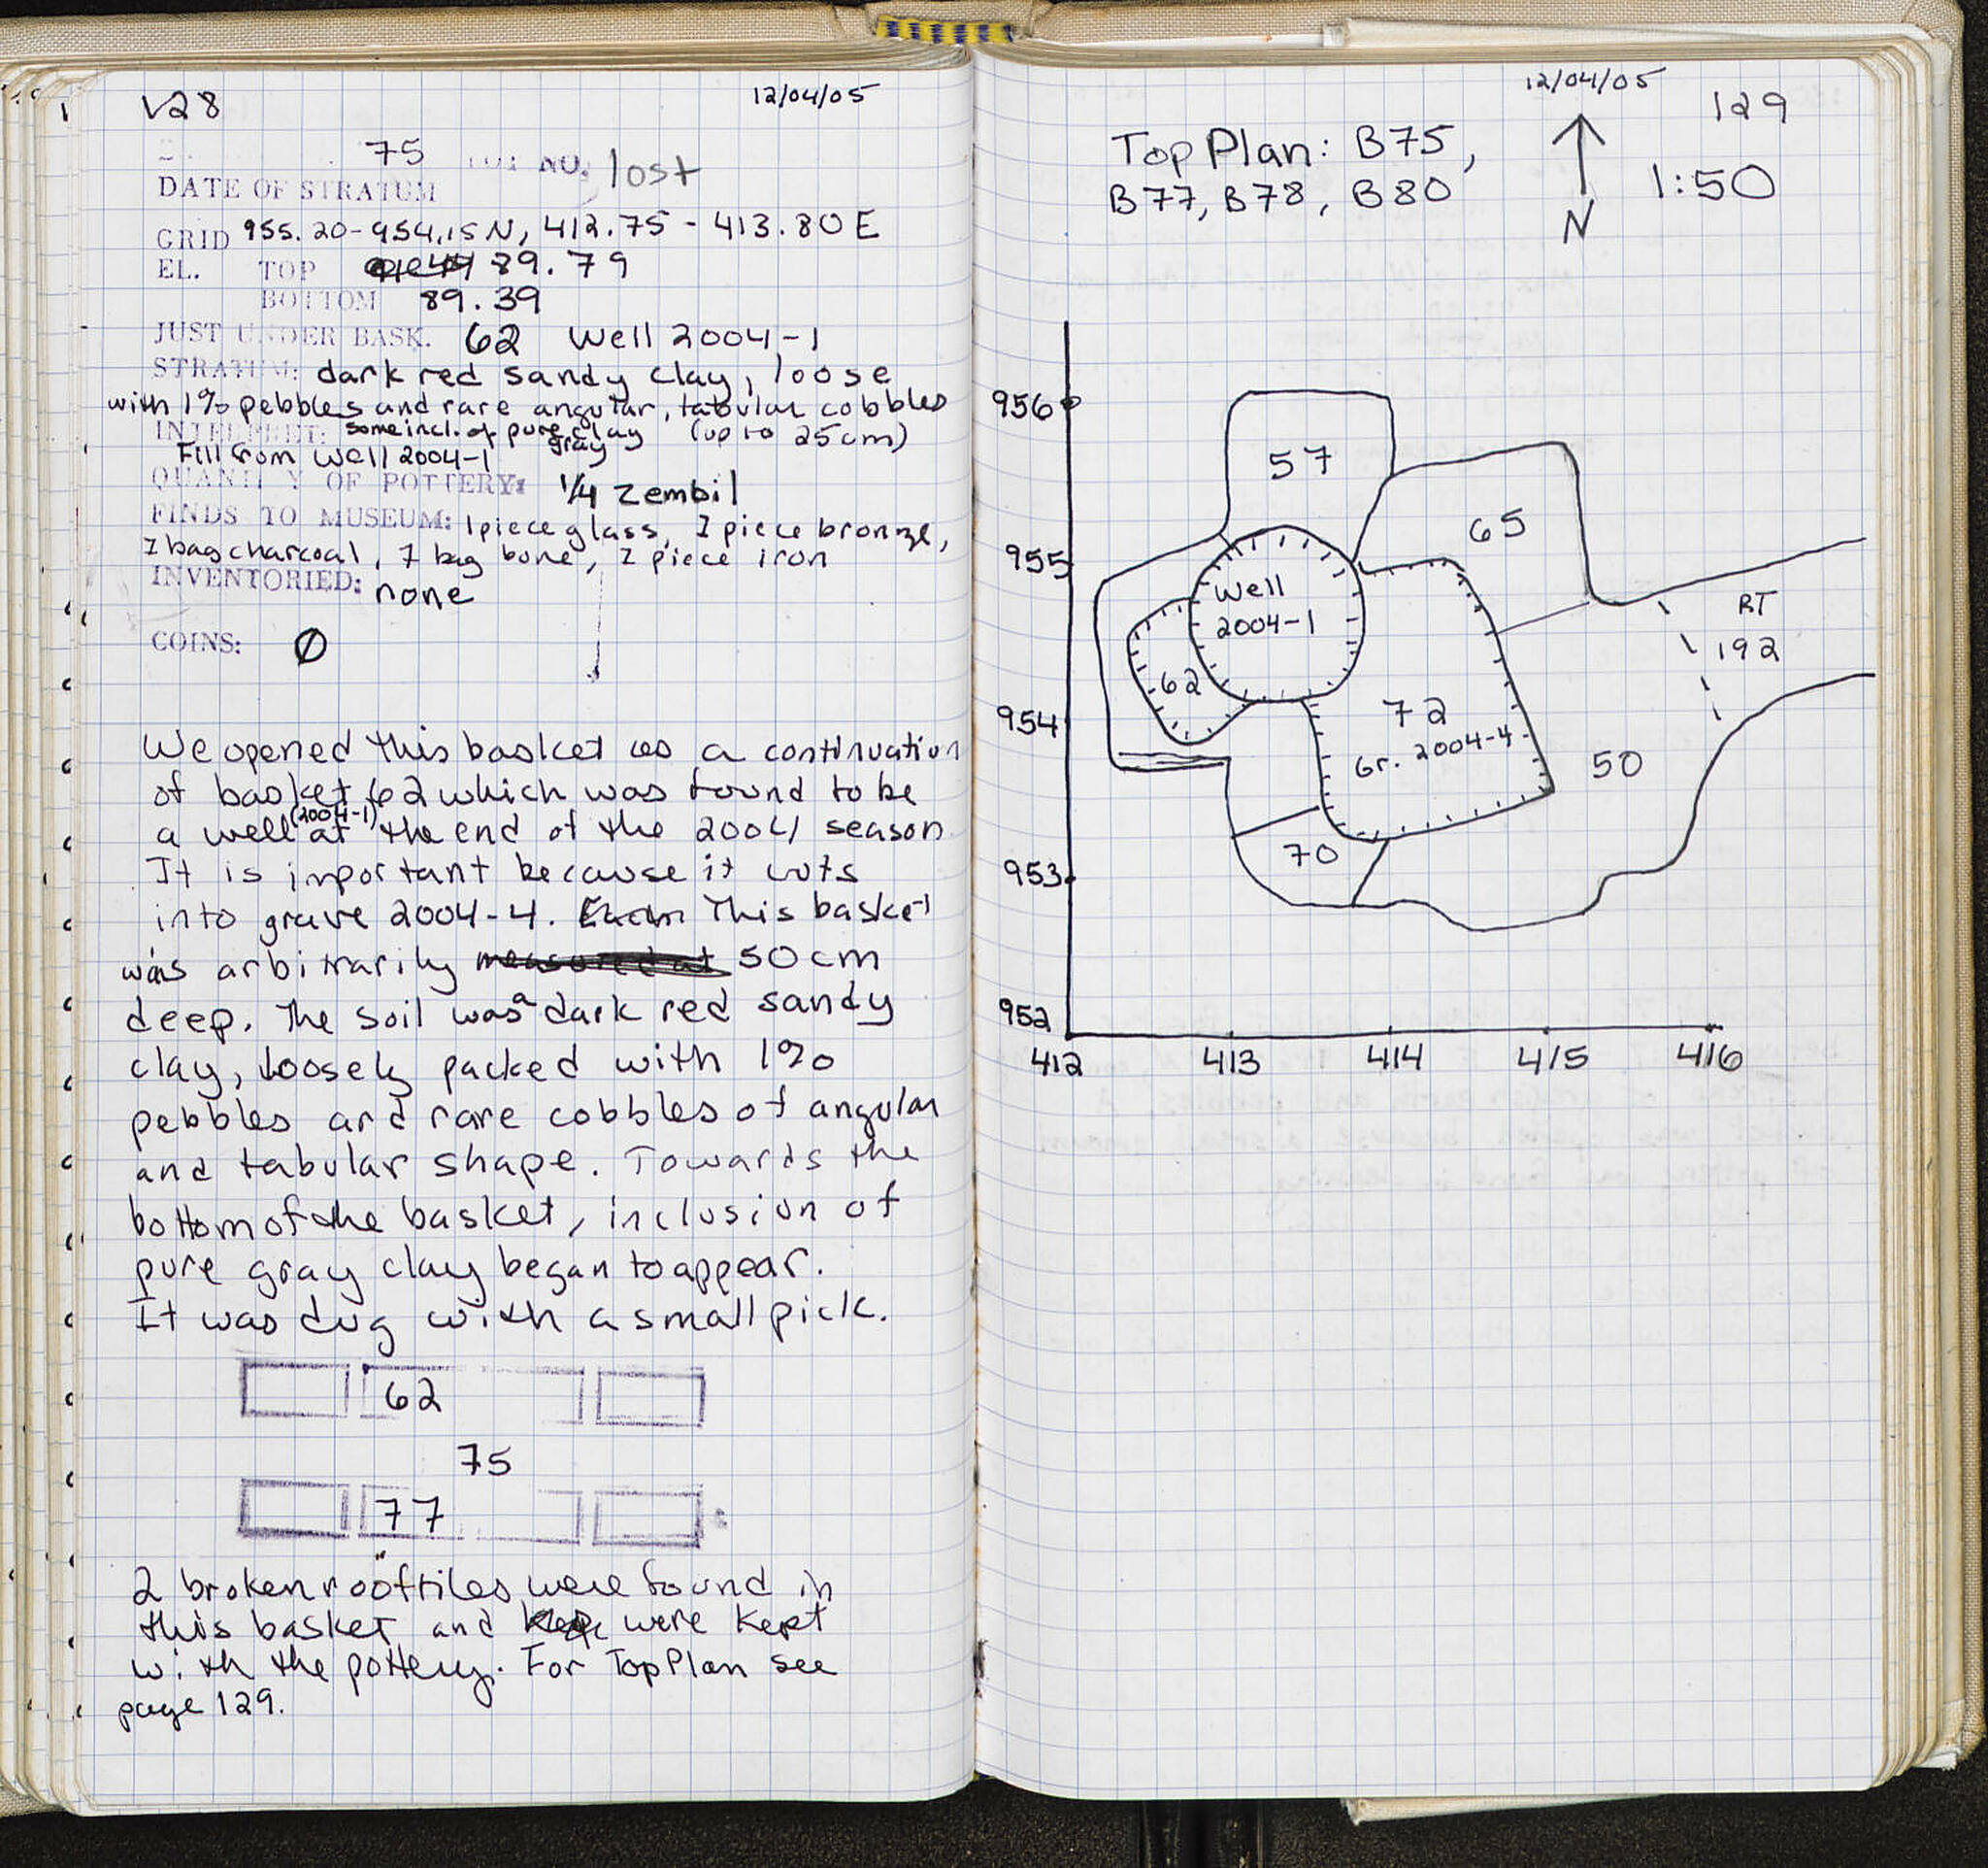 128
12/04/05
75 LOT NO. lost
DATE OF STRATUM
GRID 955.20-954.15 N, 412.75 - 413.80 E
EL. TOP 89.79
BOTTOM 89.39
JUST UNDER BASK. 62 Well 2004-1
STRATUM: dark red sandy clay, loose
with 1% pebbles and rare angular, tabular cobbles
INTERPRET: some incl. of pure gray clay (up to 25cm)
Fill from Well 2004-1
QUANTITY OF POTTERY: 1/4 zembil
FINDS TO MUSEUM: 1 piece glass, 1 piece bronze,
1 bag charcoal, 1 bag bone, 1 piece iron
INVENTORIED: none
COINS: Ø
We opened this basket as a continuation
of basket 62 which was found to be
a well (2004-1) at the end of the 2004 season
It is important because it cuts
into grave 2004-4. This basket
was arbitrarily 50cm
deep. The soil was a dark red sandy
clay, loosely packed with 1%
pebbles and rare cobbles of angular
and tabular shape. Towards the
bottom of the basket, inclusion of
pure gray clay began to appear.
It was dug with a small pick.
62
75
77
2 broken rooftiles were found in
this basket and were kept
with the pottery. For Top Plan see
page 129.
12/04/05
129
Top Plan: B75,
B77, B78, B80
N
1:50
956
57
65
955
Well
2004-1
RT
192
62
954
72
Gr. 2004-4
50
70
953
952
412 413 414 415 416